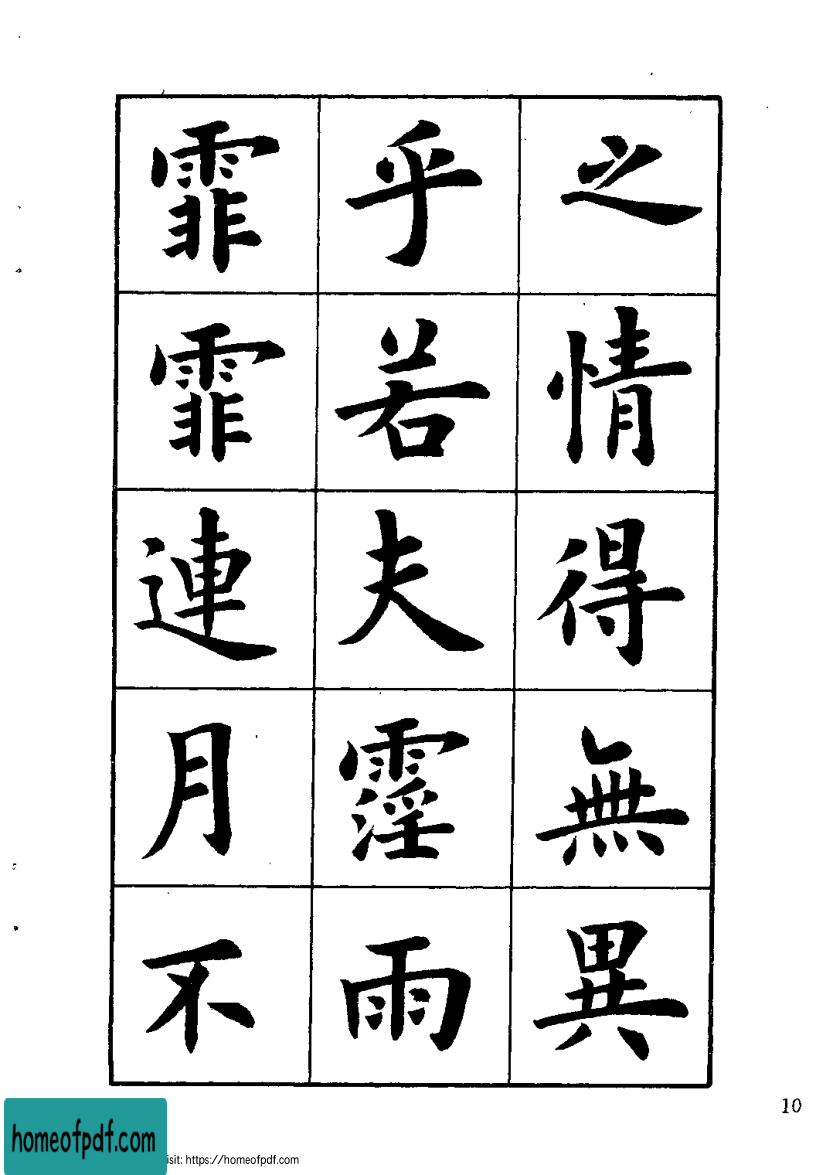 之情得無異
乎若夫霪雨
霏霏連月不
10
homeofpdf.com
isit: https://homeofpdf.com